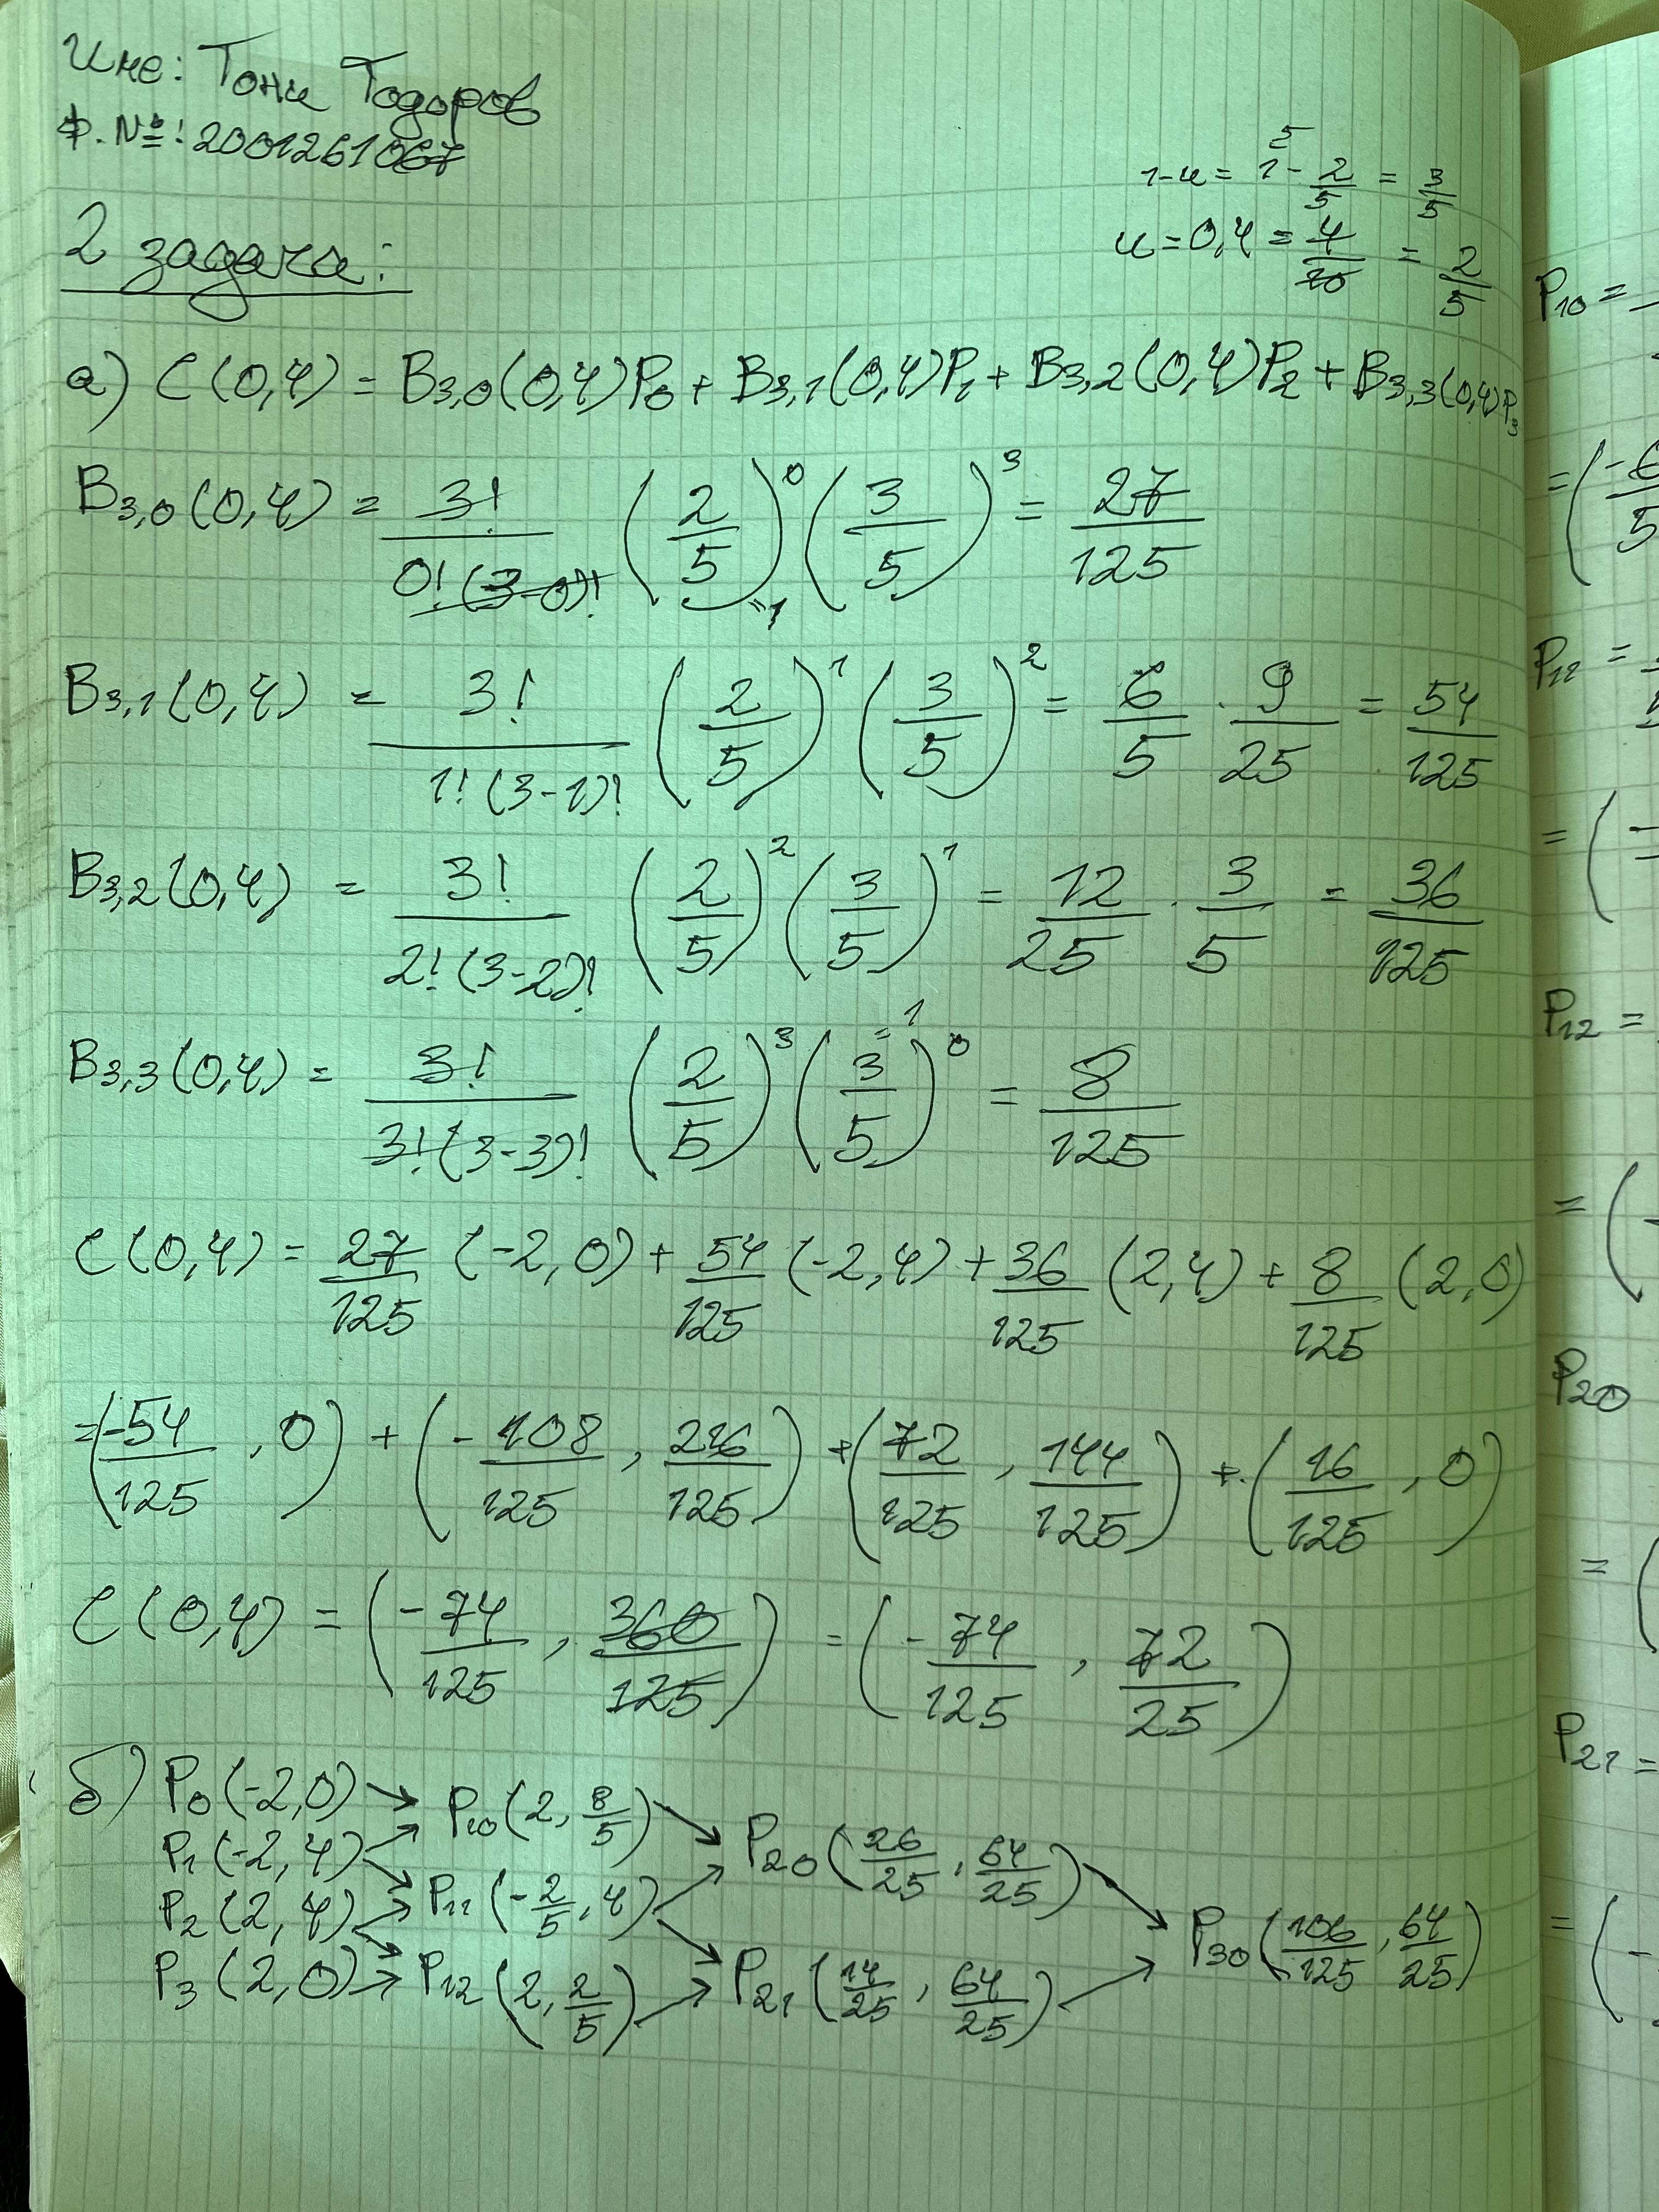 Име: Тони Тодоров
Ф. №: 2001261067
1-u = 1 - 2/5 = 3/5
u = 0,4 = 4/10 = 2/5
2 задача:
а) C(0,4) = B3,0(0,4)P0 + B3,1(0,4)P1 + B3,2(0,4)P2 + B3,3(0,4)P3
B3,0(0,4) = 3!/0!(3-0)! (2/5)^0 (3/5)^3 = 27/125
=1
B3,1(0,4) = 3!/1!(3-1)! (2/5)^1 (3/5)^2 = 6/5 . 9/25 = 54/125
B3,2(0,4) = 3!/2!(3-2)! (2/5)^2 (3/5)^1 = 12/25 . 3/5 = 36/125
=1
B3,3(0,4) = 3!/3!(3-3)! (2/5)^3 (3/5)^0 = 8/125
C(0,4) = 27/125 (-2,0) + 54/125 (-2,4) + 36/125 (2,4) + 8/125 (2,0)
= (-54/125, 0) + (-108/125, 216/125) + (72/125, 144/125) + (16/125, 0)
C(0,4) = (-74/125, 360/125) = (-74/125, 72/25)
б) P0(-2,0) → P10(2, 8/5) → P20(26/25, 64/25)
P1(-2,4) → P11(-2/5, 4)
P2(2,4) → P30(106/125, 64/25)
P3(2,0) → P12(2, 2/5) → P21(14/25, 64/25)
P10 =
P11 =
P12 =
P20
P21 =